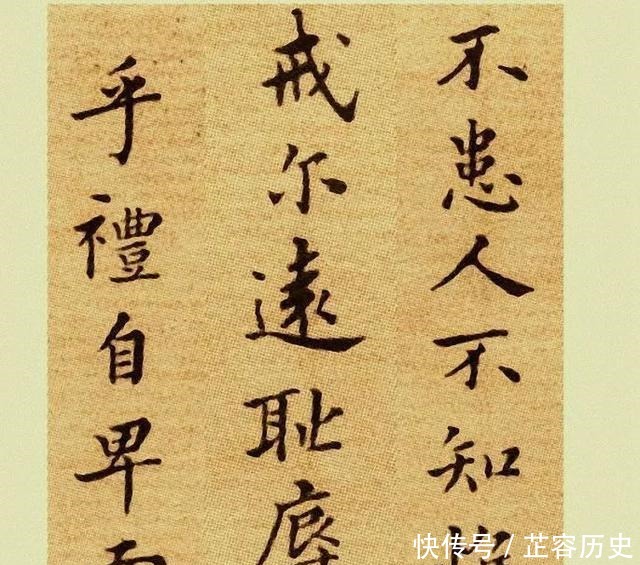 不患人不知
戒尔遠耻辱
乎禮自卑
快传号 / 芷容历史